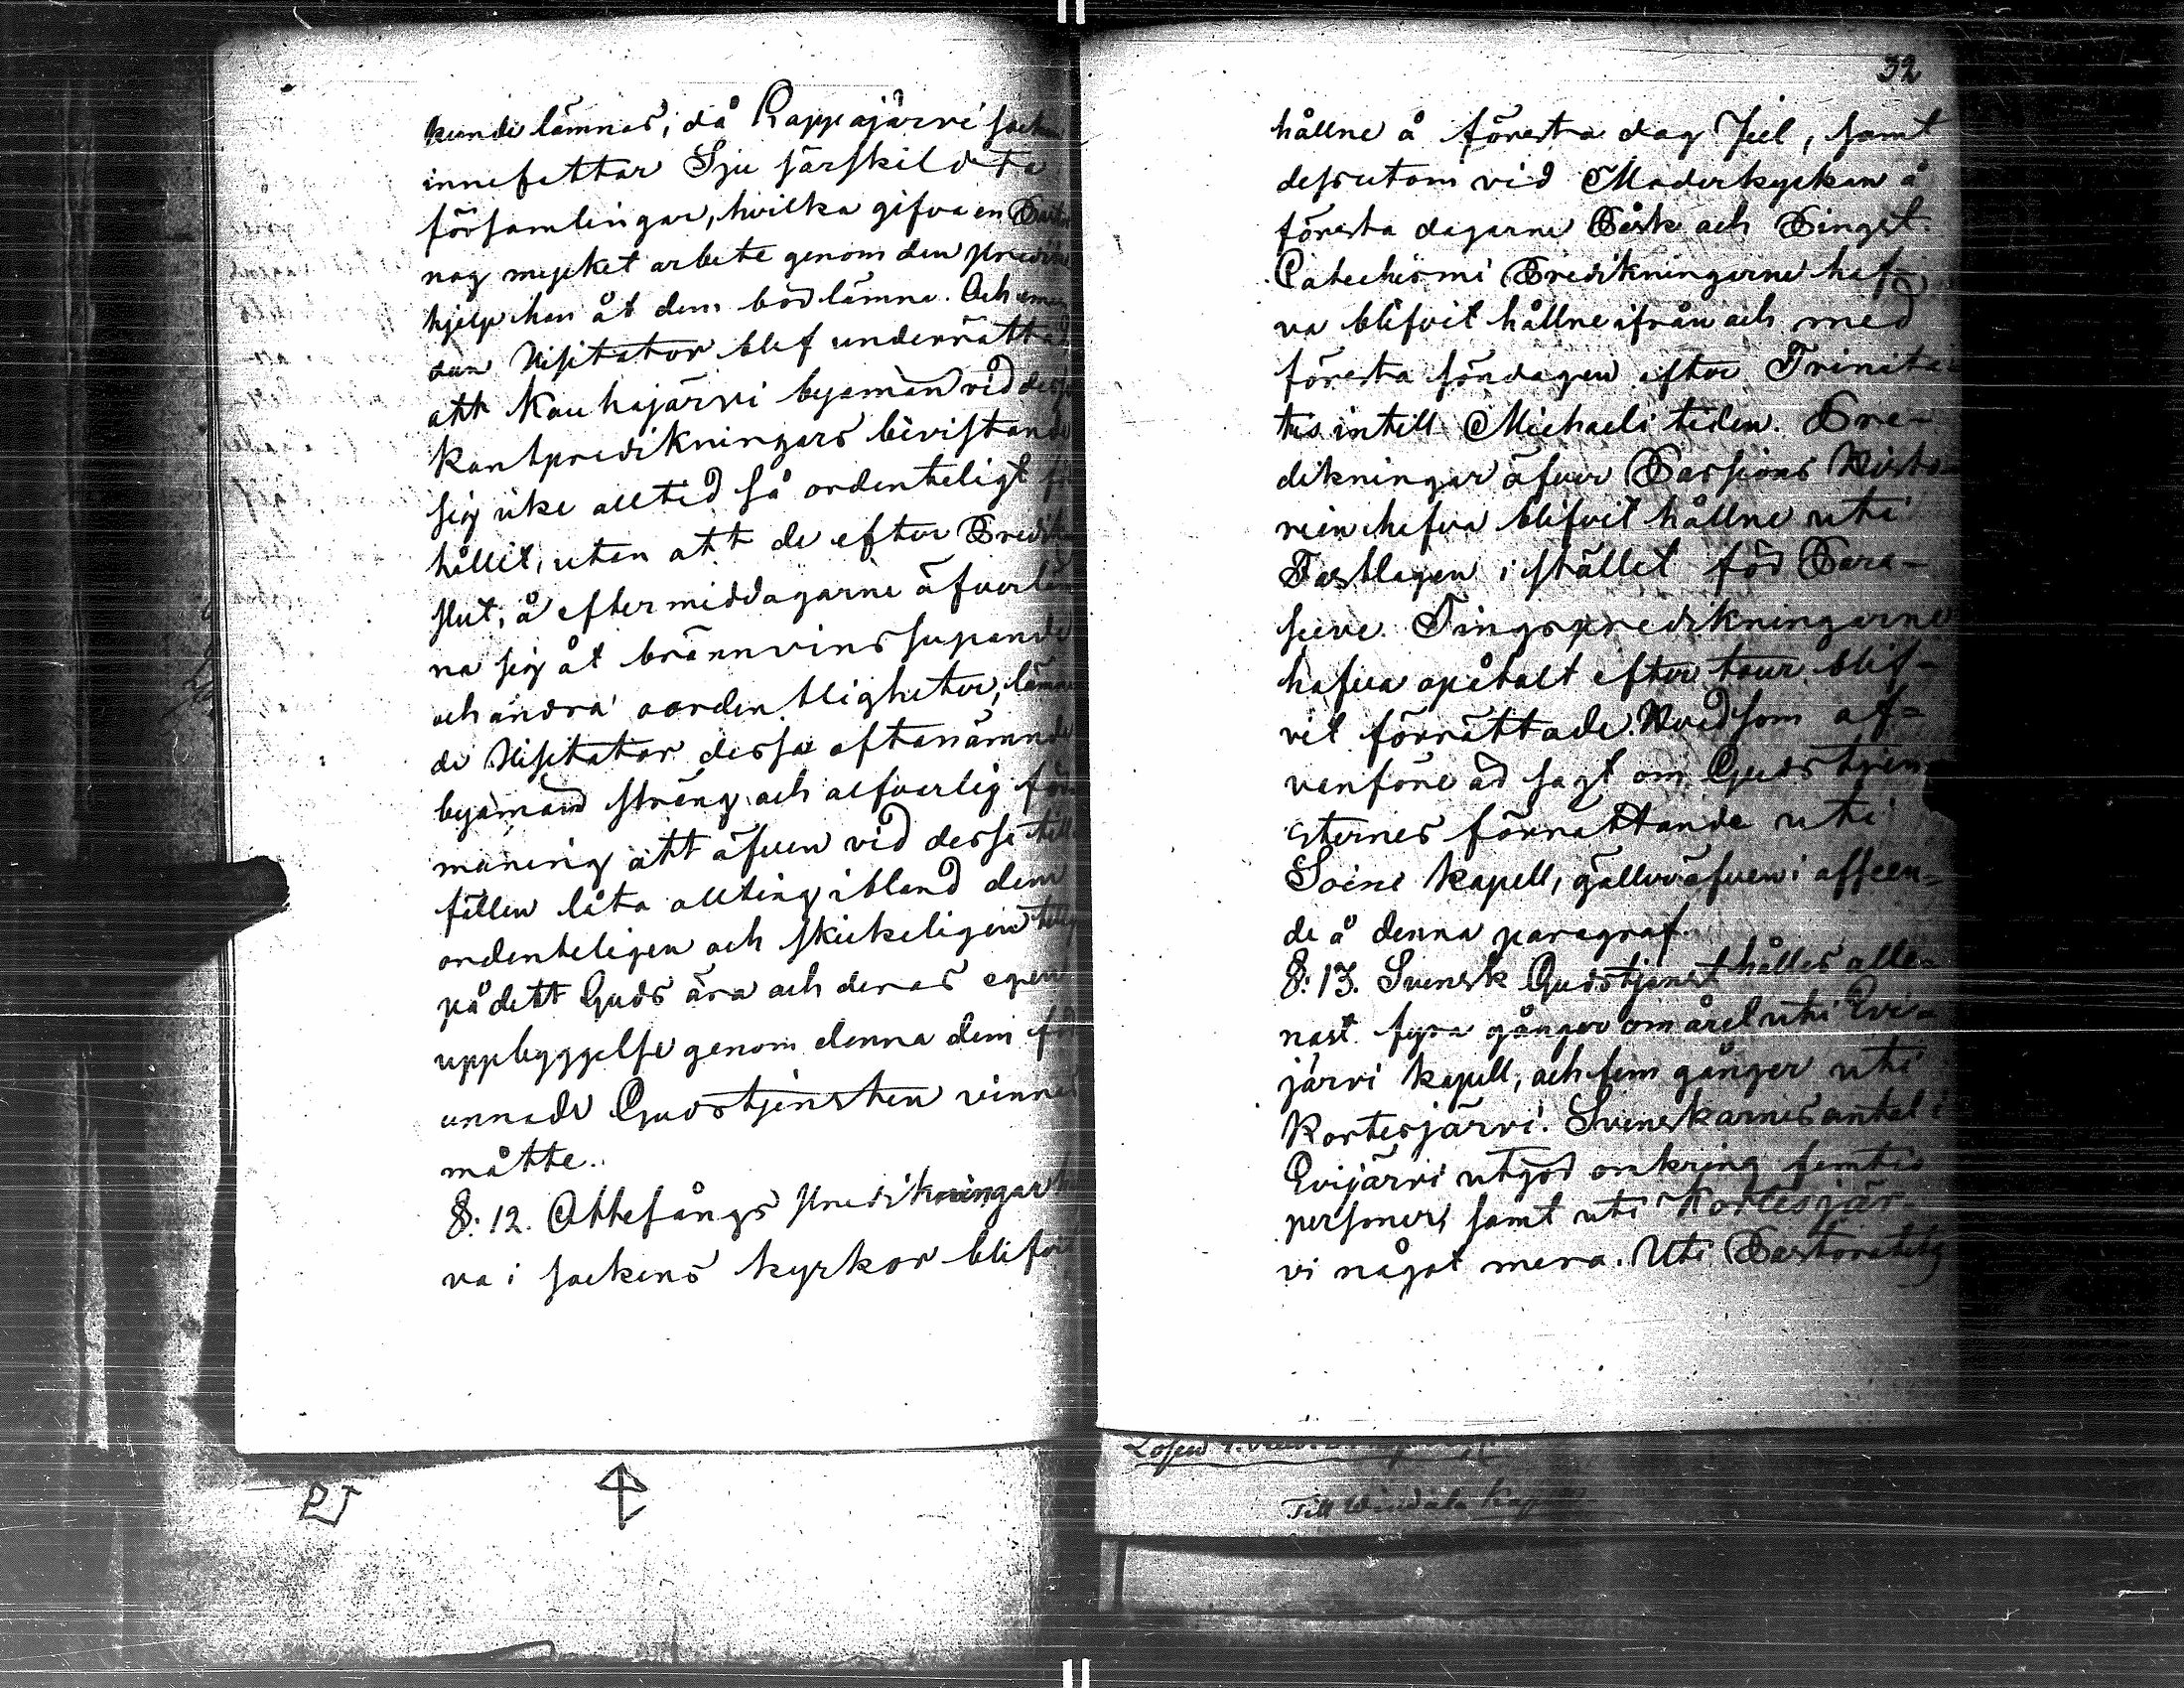 kunde lämnas, då Lappajärvi socken
innefattar Sju särskildta
församlingar, hvilka gifva en Pastor
nog mycket arbete genom den Predik
hjelp han åt dem bör lämna. Och eme
dan Visitator blef underrättad
att Kauhajärvi byamän vid dessa
kantpredikningars bivistande
sig icke alltid så ordenteligt för
hållit, utan att de efter Predik
slut, å eftermiddagarne äfverläm
na sig åt brännvins supande
och andra oordentligheter, lämna
de Visitator dessa oftanämnde
byamän sträng och alfvarlig för
maning att äfven vid dessa till
fällen låta allting ibland dem
ordenteligen och skickeligen till
på dett Guds ära och deras egen
uppbyggelse genom denna dem för
unnade Gudstjensten vinnas
måtte.
§: 12. Ottesångs Predikningar ha
va i sockens kyrkor blifvit
32
hållne å förerta dag Jul, samt
dessutom vid Moderkyrkan å
förerta dagarne Påsk och Pingst.
Catechismi Predikningarne haf
va blifvit hållne ifrån och med
förerta söndagen efter Trinita
tis intill Michaeli tiden. Pre-
dikningar äfver Passions Histo-
rien hafva blifvit hållne uti
Fastlagen i stället för Para-
seeve. Tingspredikningarne
hafva opåtalt efter tour blif-
vit förrättade. Hvad som af-
vanföre är sagt om Gudstjen-
sternes förrättande uti
Soini kapell, gäller äfven i afseen-
de å denna paragraf.
§: 13. Svensk Gudstjenst hålles alle-
nast fyra gånger om året uti Evi-
järvi kapell, och fem gånger uti
Kortesjärvi. Svenskarnes antal i
Evijärvi utgör omkring femtio
personer, samt uti Kortesjär-
vi något mera. Uti Pastoratets
Till Windala Kap